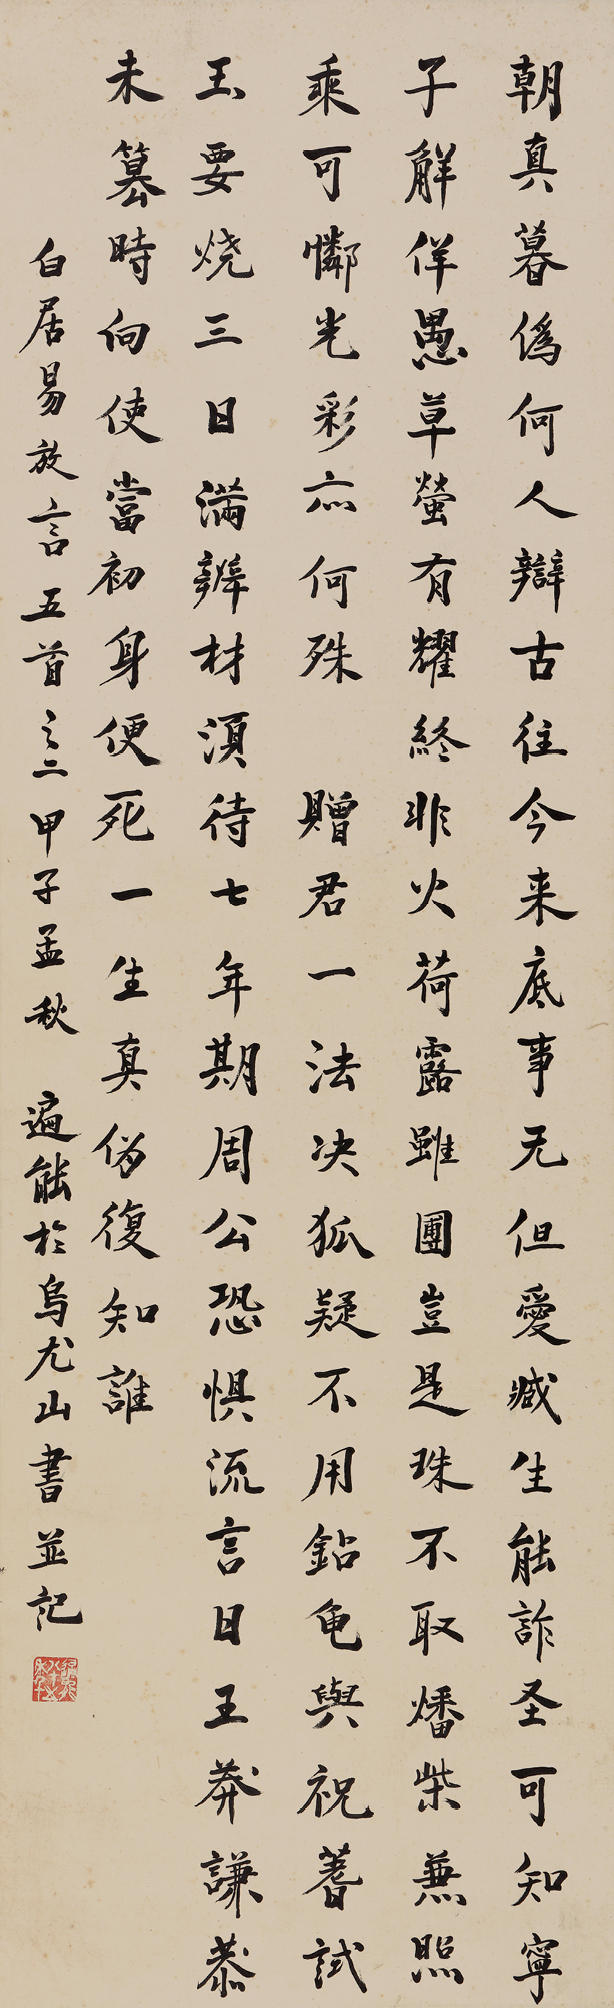 朝真暮偽何人辯古往今来底事无但愛臧生能詐圣可知寧
子解佯愚草螢有耀終非火荷露雖團豈是珠不取燔柴兼照
乘可憐光彩亦何殊 贈君一法决狐疑不用鉆龟與祝蓍試
玉要烧三日满辨材須待七年期周公恐惧流言日王莽謙恭
未篡時向使當初身便死一生真伪復知誰
白居易放言五首之二甲子孟秋 遍能於烏尤山書並記